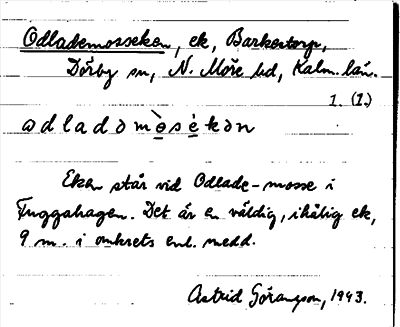 Odlademosseken, ek, Barkestorp,
Dörby sn, N. Möre hd, Kalm. län.
1. (1.)
adladəmò̱sè̱kən
Eken står vid Odlade-mosse i
Fuggahagen. Det är en väldig, ihålig ek,
9 m. i omkrets enl. medd.
Astrid Göransson, 1943.